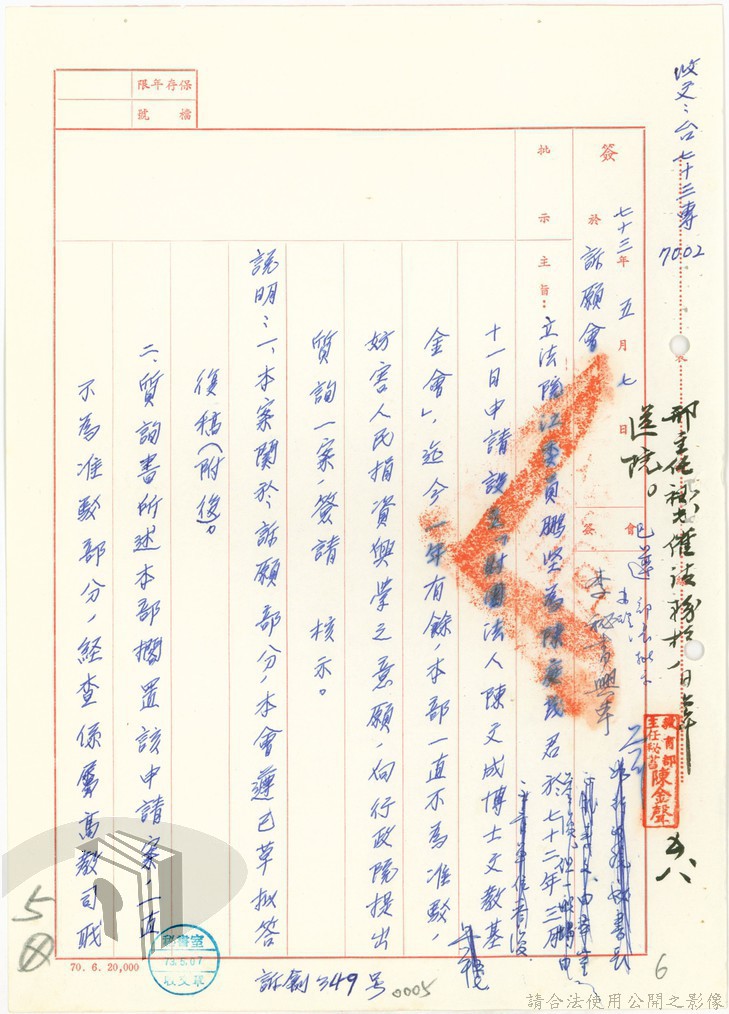 收文:台七十三專
7002
送院。
簽
七十三年五月七日
於
訴願會
會簽
批示
主旨:立法院江委員鵬堅為陳庭茂君於七十二年三月
十一日申請設立「財團法人陳文成博士文教基
金會」,迄今一年有餘,本部一直不為准駁,
妨害人民捐資興學之意願,向行政院提出
質詢一案,簽請 核示。
說明:一、本案關於訴願部分,本會遵已草擬答
復稿(附後)。
二、質詢書所述本部擱置該申請案,一直
不為准駁部分,經查係屬高教司職
保存年限
檔號
教育部
主任秘書
陳金聲
五八
70. 6. 20,000
秘書室
73.5.07
收文章
訴創349号
0005
5
6
請合法使用公開之影像